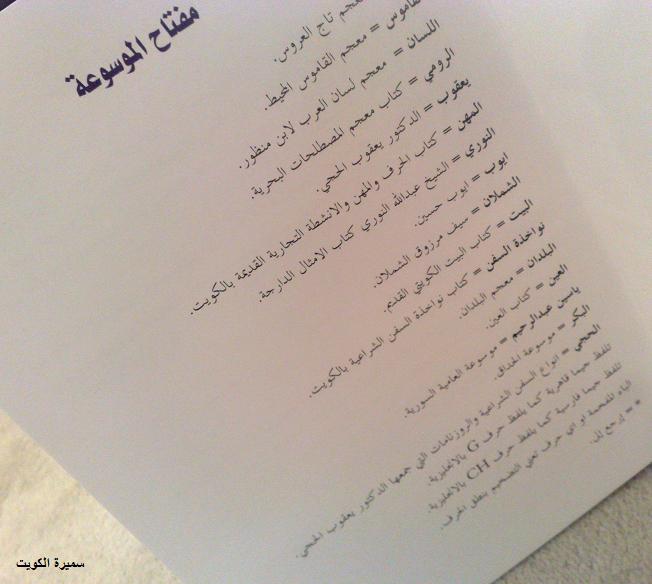 مفتاح الموسوعة
معجم تاج العروس.
القاموس = معجم القاموس المحيط.
اللسان = معجم لسان العرب لابن منظور.
الرومي = كتاب معجم المصطلحات البحرية.
يعقوب = الدكتور يعقوب الحجي.
المهن = كتاب الحرف والمهن والانشطة التجارية القديمة بالكويت.
النوري = الشيخ عبدالله النوري كتاب الامثال الدارجة.
ايوب = ايوب حسين.
الشملان = سيف مرزوق الشملان.
البيت = كتاب البيت الكويتي القديم.
نواخذة السفن = كتاب نواخذة السفن الشراعية بالكويت.
البلدان = معجم البلدان.
العين = كتاب العين.
ياسين عبدالرحيم = موسوعة العامية السورية.
البكر = موسوعة الحداق.
الحجي = انواع السفن الشراعية والروزنامات التي جمعها الدكتور يعقوب الحجي.
تلفظ جيما قاهرية كما يلفظ حرف G بالانجليزية.
تلفظ جيما فارسية كما يلفظ حرف CH بالانجليزية.
الباء المفخمة او اي حرف تعني التضخيم بنطق الحرف.
* = ارجع الى.
سميرة الكويت